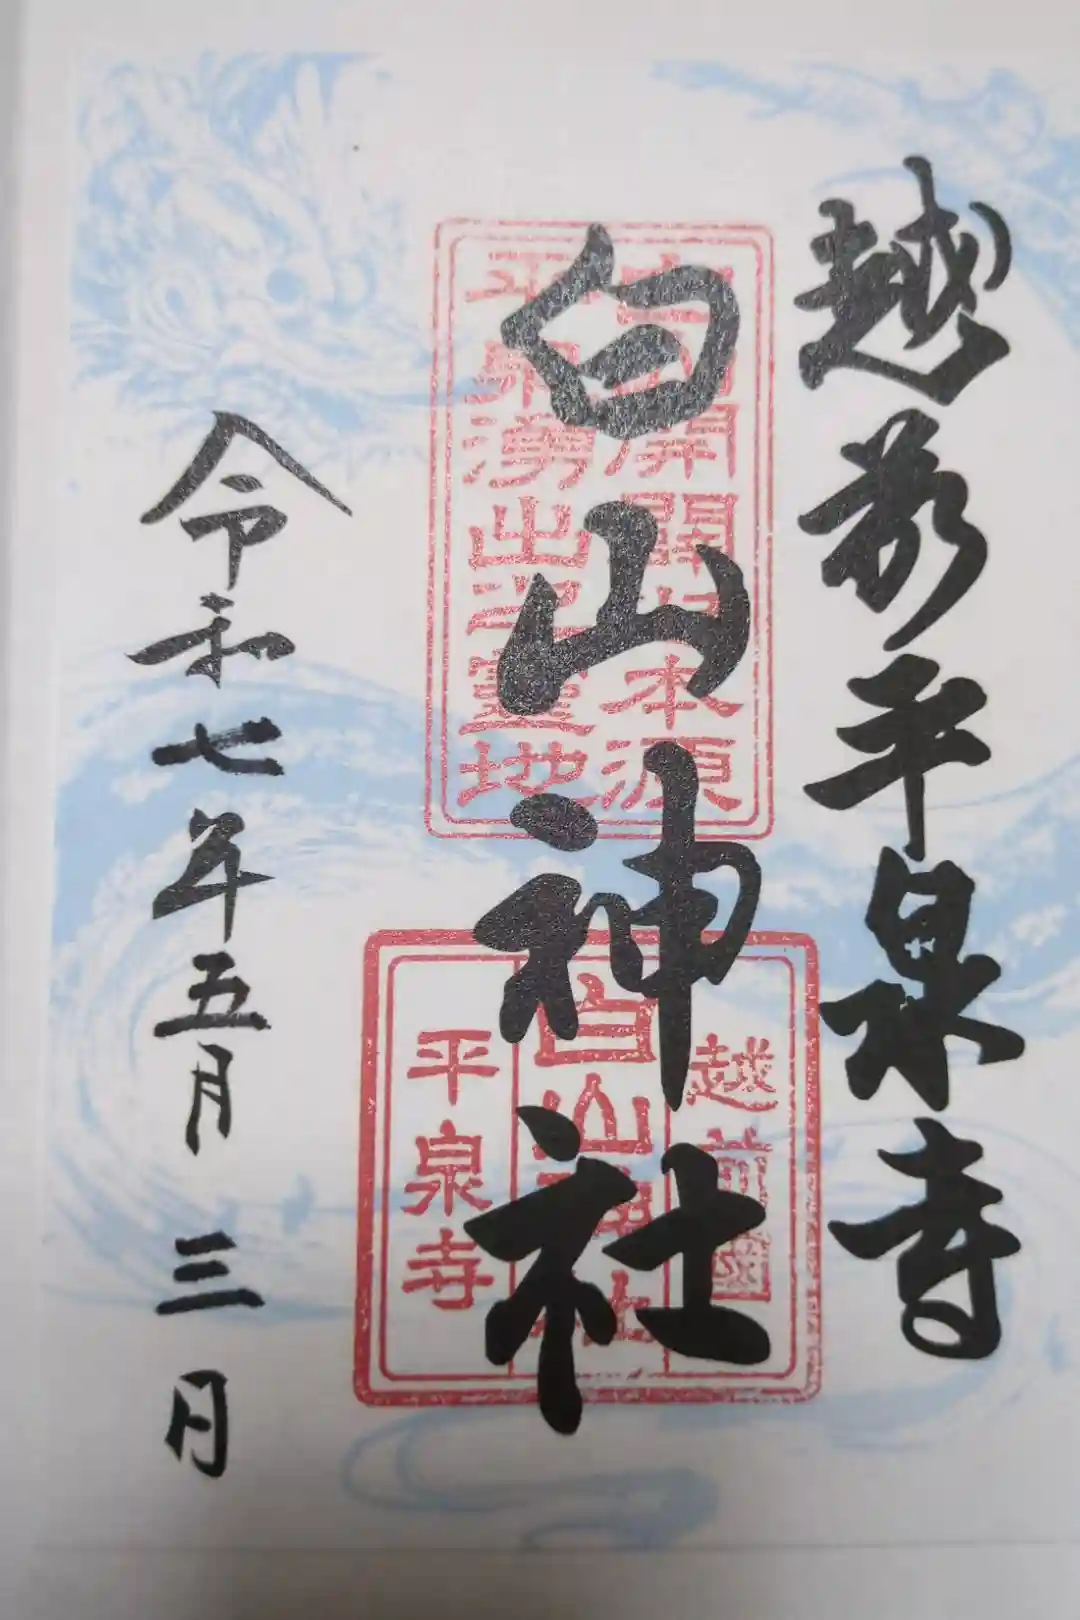 越前平泉寺
白山神社
本源
平泉湧出之靈地
越前國
白山神社
平泉寺
令和七年五月三日